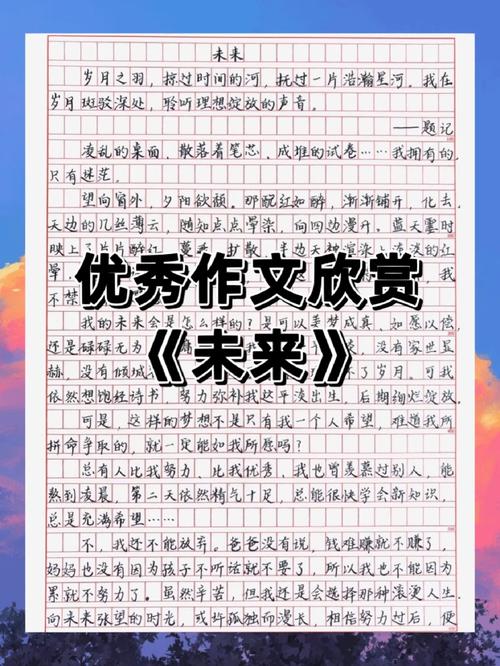 未来
岁月之羽，掠过时间的河，托过一片浩瀚星河。我在
岁月斑驳深处，聆听理想绽放的声音。
——题记
凌乱的桌面，散落着笔芯、成堆的试卷……我拥有的
只有迷茫。
望向窗外，夕阳欲颓。那酡红如醉，渐渐铺开，化去
天边的几丝薄云，随知点点晕染，向四边漫开。蓝天霎时
映上了片片醉红，蔓
晕
我
不禁
优秀作文欣赏
《未来》
我的未来会是怎么样的？是可以美梦成真、如愿以偿
还是碌碌无为
没有家世显
赫，没有倾城
了岁月。可我
依然想饱经诗书，努力弥补我这平凌出生，后期绚烂绽放
可是，这样的梦想不是只有我一个人希望，难道我所
拼命争取的，就一定能如我所愿吗？
总有人比我努力、比我优秀，我也曾羡慕过别人，能
熬到凌晨，第二天依然精气十足，总能很快学会新知识，
总是充满希望……
不，我还不能放弃。爸爸没有说，钱难赚就不赚了，
妈妈也没有因为孩子不听话就不要了，所以我也不能因为
累就不努力了。虽然辛苦，但我还是会选择那种滚烫人生。
向未来张望的时光，或许孤独而漫长，相信努力过后，便